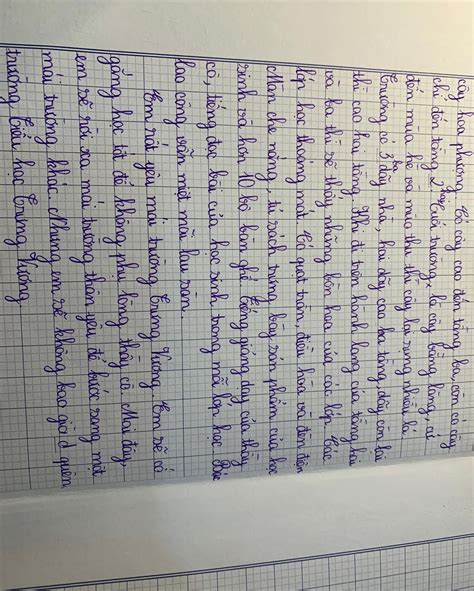 cây hoa phượng. Có cây cao đến tầng ba, còn có cây
chỉ đến tầng 2. Cuối trường, là cây bằng lăng, cứ
đến mùa hè và mùa thu thì cây lại rụng nhiều lá.
Trường có 3 dãy nhà, hai dãy cao ba tầng, dãy còn lại
thì cao hai tầng. Khi đi trên hành lang của tầng hai
và ba thì sẽ thấy những bồn hoa của các lớp. Các
lớp học thoáng mát. Có quạt trần, điều hòa và đèn điện.
Màn che nắng, tủ sách trưng bày sản phẩm của học
sinh và hơn 10 bộ bàn ghế. Tiếng giảng dạy của thầy
cô, tiếng đọc bài của học sinh trong mỗi lớp học. Bác
lao công vẫn miệt mài lau sàn.
Em rất yêu mái trường Trưng Vương. Em sẽ cố
gắng học tốt để không phụ lòng thầy cô. Mai đây,
em sẽ rời xa mái trường thân yêu để bước sang một
mái trường khác. Nhưng em sẽ không bao giờ quên
trường Tiểu học Trưng Vương.